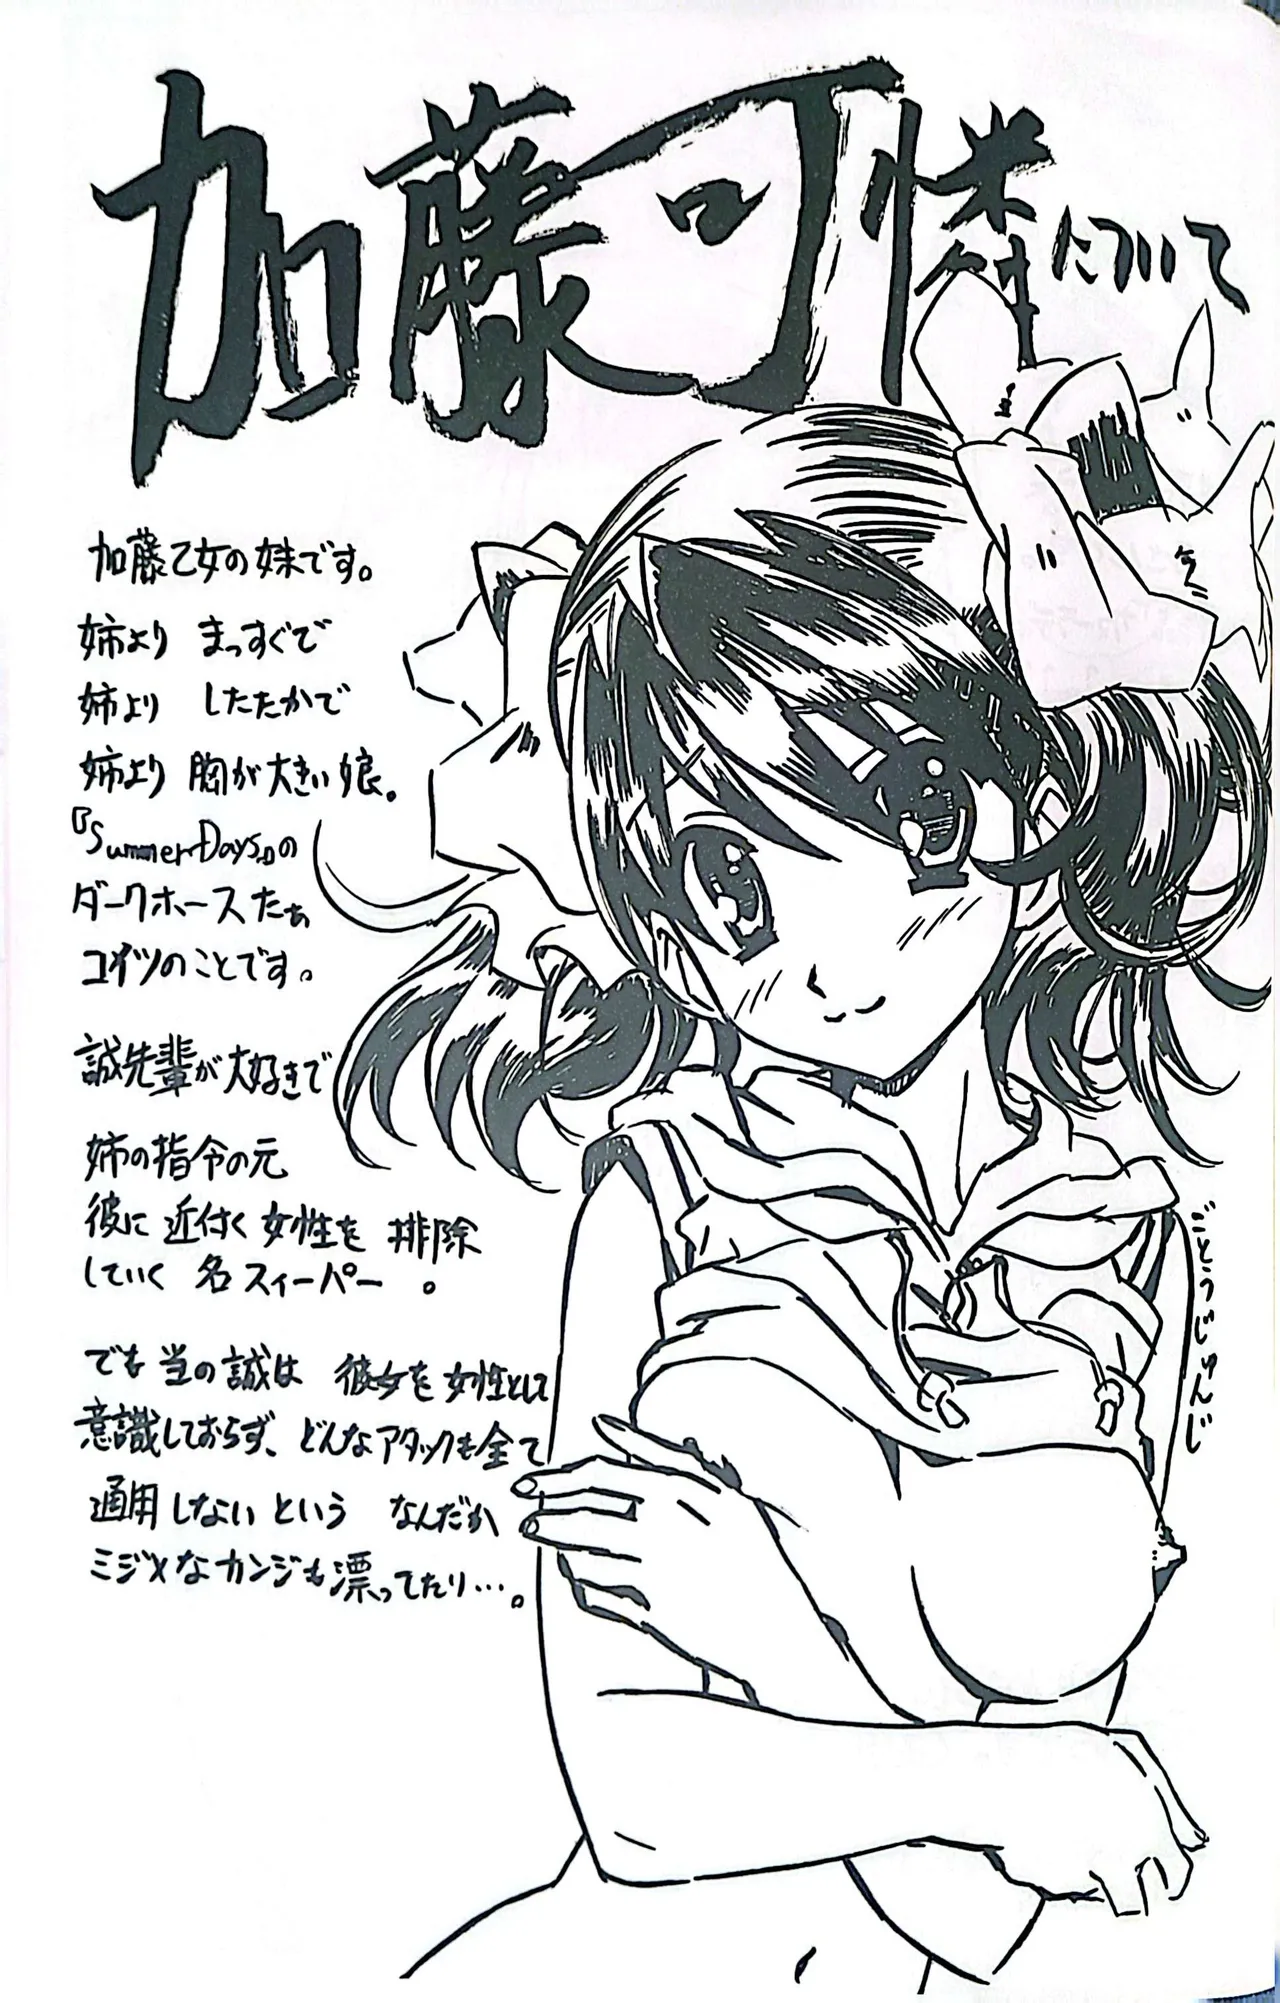 加藤可憐について
加藤乙女の妹です。
姉より まっすぐで
姉より したたかで
姉より 胸が大きい娘。
『SummerDays』の
ダークホースたぁ
コイツのことです。
誠先輩が大好きで
姉の指令の元
彼に 近付く 女性を 排除
していく 名スイーパー 。
でも 当の誠は 彼女を 女性として
意識しておらず、どんなアタックも全て
通用しない という なんだか
ミジメなカンジも漂ってたり…。
ごとうじゅんじ